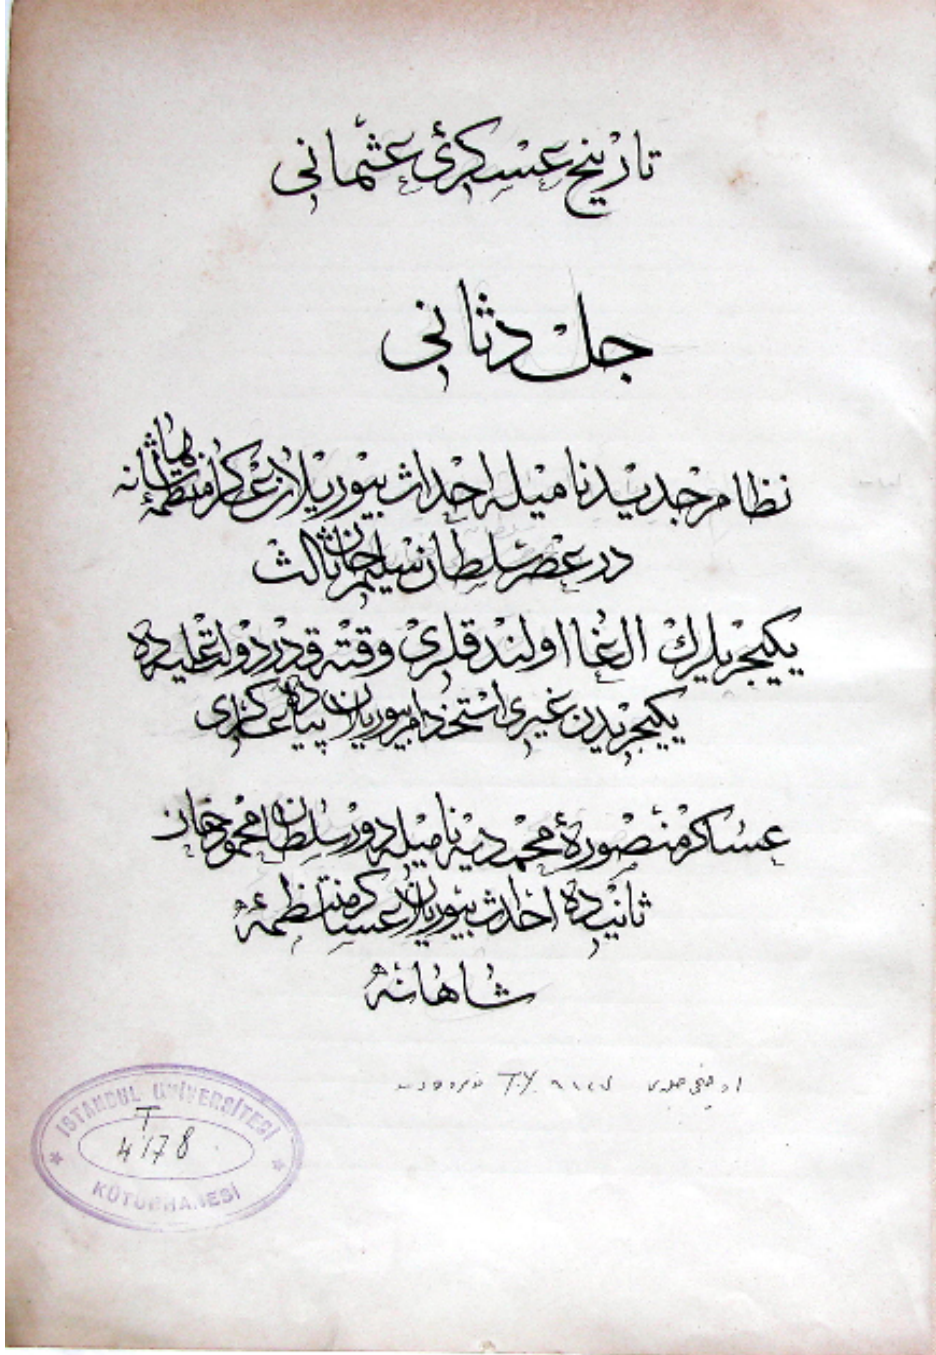 تاريخ عسكرئ عثمانى
جلد ثانى
نظام جديد ناميله احداث بيوريلان عساكر منتظمهٔ شاهانه
در عصر سلطان سليم خان ثالث
يكيچريلرك الغا اولندقلرى وقته قدر دولتعليه ده
يكيچريدن غيرى استخدام بيوريلان پياده عساكرى
عساكر منصورهٔ محمديه ناميله دور سلطان محمود خان
ثانيده احداث بيوريلان عساكر منتظمهٔ
شاهانه
T.Y.
İSTANBUL ÜNİVERSİTESİ
T
4178
KÜTÜPHANESİ